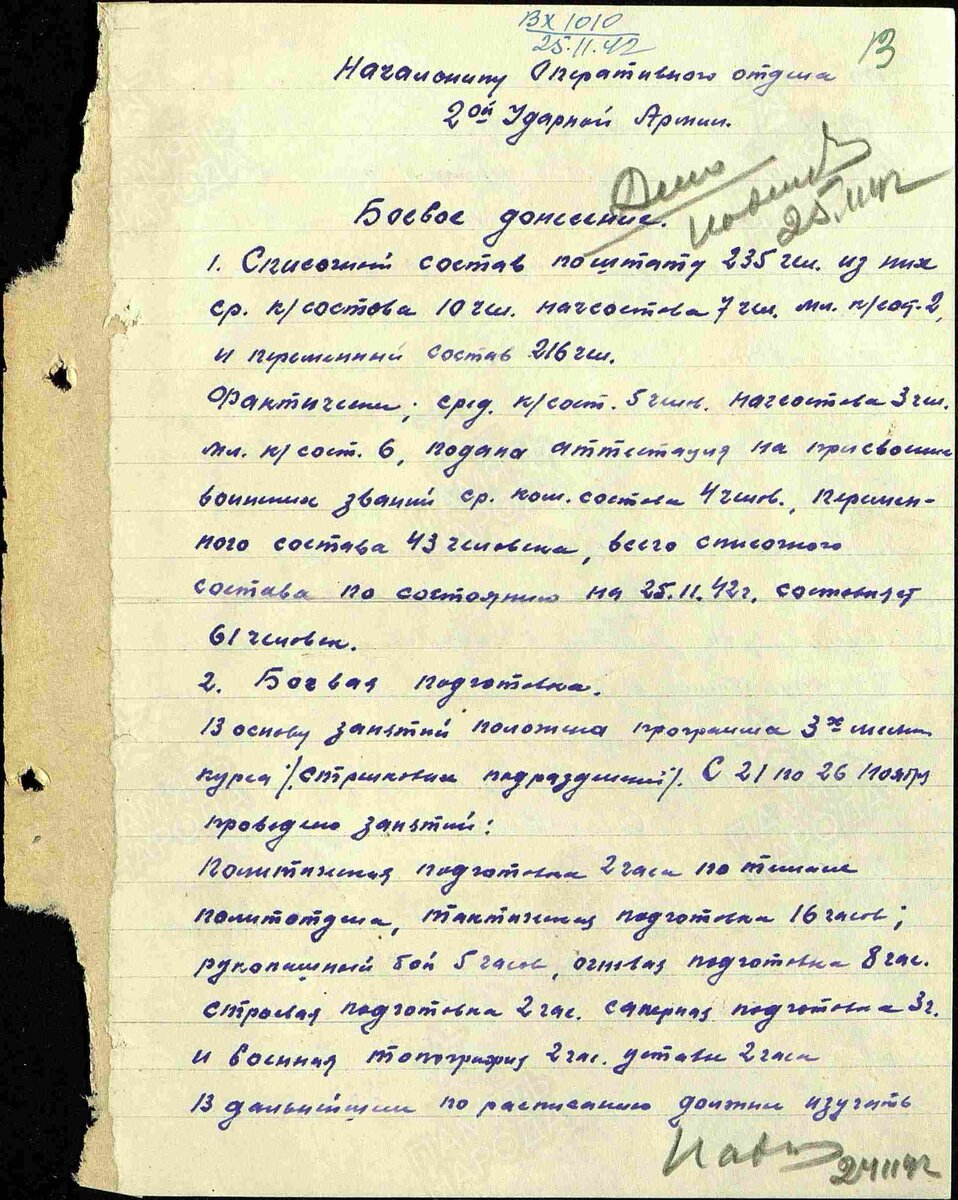 ВХ 1010
25.11.42
13
Начальнику Оперативного отдела
2ой Ударной Армии.
Дело
25.11.42
Боевое донесение.
1. Списочный состав по штату 235 чел. из них
ср. к/состова 10 чел. начсостова 7 чел. мл. к/сост-2,
и переменный состав 216 чел.
Фактически; сред. к/сост. 5 челов. начсостова 3 чел.
мл. к/сост. 6, подана аттестация на присвоение
воинских званий ср. ком. состова 4 челов., перемен-
ного состава 43 человека, всего списочного
состава по состоянию на 25.11.42 г. состовляет
61 человек.
2. Боевая подготовка.
В основу занятий положена программа 3х месячн.
курса /стрелковых подразделений/. С 21 по 26 ноября
проведено занятий:
Политическая подготовка 2 часа по темам
политотдела, тактическая подготовка 16 часов;
рукопашный бой 5 часов, огневая подготовка 8 час.
строевая подготовка 2 час. саперная подготовка 3 ч.
и военная топография 2 час. уставы 2 часа
В дальнейшем по расписанию должны изучить
24.11.42